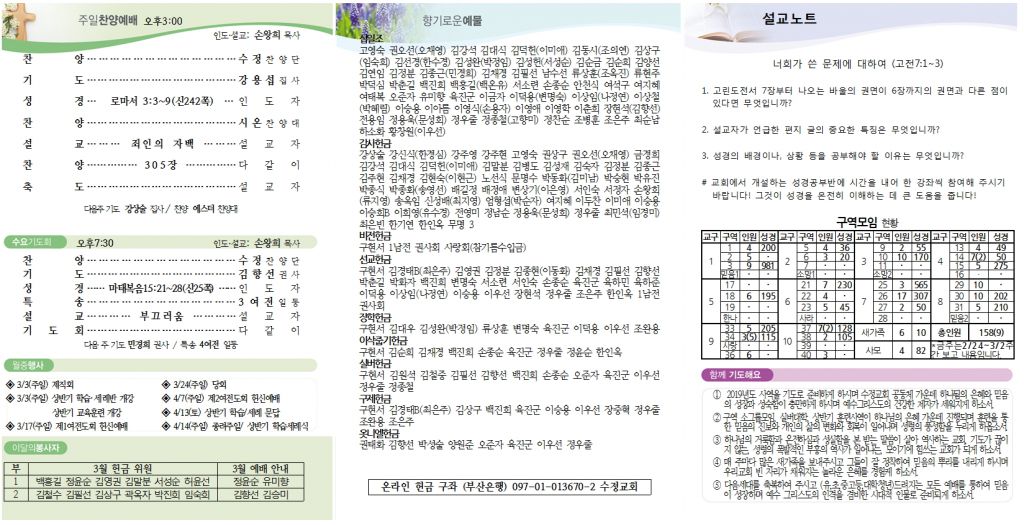 주일찬양예배 오후3:00
인도·설교: 손왕희 목사
찬 양 수정찬양단
기 도 강용섭 집사
성 경 로마서 3:3~9(신242쪽) 인 도 자
찬 양 시온찬양대
설 교 죄인의 자백 설 교 자
찬 양 305장 다 같 이
축 도 설 교 자
다음주 기도 강상술 집사 / 찬양 에스더 찬양대
수요기도회 오후7:30
인도·설교: 손왕희 목사
찬 양 수정찬양단
기 도 김향선 권사
성 경 마태복음15:21~28(신25쪽) 인 도 자
특 송 3여전 일동
설 교 부끄러움 설 교 자
기 도 회 다 같 이
다음 주 기도 민경희 권사 / 특송 4여전 일동
월중행사
◈ 3/3(주일) 제직회
◈ 3/3(주일) 상반기 학습·세례반 개강
상반기 교육훈련 개강
◈ 3/17(주일) 제1여전도회 헌신예배
◈ 3/24(주일) 당회
◈ 4/7(주일) 제2여전도회 헌신예배
◈ 4/13(토) 상반기 학습/세례 문답
◈ 4/14(주일) 종려주일/ 상반기 학습세례식
이달의봉사자
부 3월 헌금 위원 3월 예배 안내
1 백홍길 정윤순 김영권 김말분 서성순 허윤선 정윤순 유미향
2 김철수 김필선 김상구 곽욱자 박진희 임숙희 김향선 김승미
향기로운예물
십일조
고영숙 권오선(오채영) 김강석 김대식 김덕헌(이미애) 김동시(조의연) 김상구
(임숙희) 김선경(한수경) 김성완(박정임) 김성헌(서성순) 김순금 김순희 김양선
김연임 김정분 김종근(민경희) 김채경 김필선 남수선 류상훈(조옥진) 류현주
박덕심 박춘길 백진희 백홍길(백온유) 서소련 손종순 안천식 여석구 여지혜
여태복 오준자 유미향 육진군 이금자 이덕용(변명숙) 이상임(나정연) 이상철
(박혜림) 이승용 이아름 이영식(손용자) 이영애 이영학 이춘희 장현석(김향선)
전용임 정용욱(문성희) 정우줄 정종철(고향미) 정찬순 조병훈 조은주 최순남
하소화 황창원(이우선)
감사헌금
강상술 강신식(한경심) 강주영 강주현 고영숙 권상구 권오선(오채영) 금경희
김강석 김대식 김덕헌(이미애) 김말분 김병도 김성재 김숙자 김정분 김종근
김주현 김채경 김현숙(이현근) 노선식 문명수 박동화(김미남) 박승현 박유진
박종식 박종화(송영선) 배길정 배정애 변상기(이은영) 서인숙 서정자 손왕희
(류지영) 송옥임 신성배(최지영) 엄형섭(박순자) 여지혜 이두찬 이미애 이승용
이승희B 이희영(유수경) 전영미 정남순 정용욱(문성희) 정우줄 최민석(임경미)
최은빈 한기연 한인옥 무명 3
비전헌금
구현서 1남전 권사회 사랑회(참기름수입금)
선교헌금
구현서 김경태B(최은주) 김영권 김정분 김종현(이동화) 김채경 김필선 김향선
박춘길 박화자 백진희 변명숙 서소련 서인숙 손종순 육진군 육하민 육하준
이덕용 이상임(나정연) 이승용 이우선 장현석 정우줄 조은주 한인옥 1남전
권사회
장학헌금
구현서 김대우 김성완(박정임) 류상훈 변명숙 육진군 이덕용 이우선 조완용
이삭줍기헌금
구현서 김순희 김채경 백진희 손종순 육진군 정우줄 정윤순 한인옥
실버헌금
구현서 김원석 김철중 김필선 김향선 백진희 손종순 오준자 육진군 이우선
정우줄 정종철
구제헌금
구현서 김경태B(최은주) 김상구 백진희 육진군 이승용 이우선 장종학 정우줄
조완용 조은주
옷니엘헌금
권태화 김향선 박성술 양원준 오준자 육진군 이우선 정우줄
온라인 헌금 구좌 (부산은행) 097-01-013670-2 수정교회
설교노트
너희가 쓴 문제에 대하여 (고전7:1~3)
1. 고린도전서 7장부터 나오는 바울의 권면이 6장까지의 권면과 다른 점이
있다면 무엇입니까?
2. 설교자가 언급한 편지 글의 중요한 특징은 무엇입니까?
3. 성경의 배경이나, 상황 등을 공부해야 할 이유는 무엇입니까?
# 교회에서 개설하는 성경공부반에 시간을 내어 한 강좌씩 참여해 주시기
바랍니다! 그것이 성경을 온전히 이해하는 데 큰 도움을 줍니다!
구역모임 현황
교구 구역 인원 성경 교구 구역 인원 성경 교구 구역 인원 성경 교구 구역 인원 성경
1 1 4 200 2 5 4 36 3 9 2 55 4 13 4 49
2 5 · 6 3 20 10 10 170 14 7(2) 50
3 9 981 7 · · 11 · · 15 5 275
믿음1 · · 소망1 · · 소망2 · · 16 · ·
5 17 · · 6 21 7 230 7 25 3 565 8 29 10 ·
18 6 195 22 4 · 26 17 307 30 10 202
19 · · 23 5 45 27 2 50 31 5 210
한나 · · 사라 · · 28 · · 믿음2 · ·
9 33 5 205 10 37 7(2) 128 새가족 6 10 총인원 158(9)
34 3(5) 115 38 2 105
사랑 · · 39 · · 사모 4 82 *금주는2/24~3/2주
36 6 · 40 3 · 간 보고 내용입니다.
함께 기도해요
① 2019년도 사역을 기도로 준비하게 하시며 수정교회 공동체 가운데 하나님의 은혜와 믿음
의 성장과 성숙함이 충만하게 하시며 예수그리스도의 건강한 제자가 세워지게 하소서.
② 구역 소그룹모임, 실버대학, 상반기 훈련사역이 하나님의 은혜 가운데 진행되며 훈련을 통
한 믿음의 진보와 개인의 삶의 변화와 회복이 일어나며 성령의 풍성함을 누리게 하옵소서.
③ 하나님의 거룩함과 온전하심과 성실함을 본 받는 말씀이 살아 역사하는 교회, 기도가 끊이
지 않는, 성령의 폭발적인 부흥의 역사가 일어나는, 모이기에 힘쓰는 교회가 되게 하소서.
④ 매 주마다 많은 새가족을 보내주시고 그들이 잘 정착하여 믿음의 뿌리를 내리게 하시며
우리교회 빈 자리가 채워지는 놀라운 은혜를 경험케 하소서.
⑤ 다음세대를 축복하여 주시고 (유,초,중고등,대학청년)드려지는 모든 예배를 통하여 믿음
이 성장하며 예수 그리스도의 인격을 겸비한 시대적 인물로 준비되게 하소서.